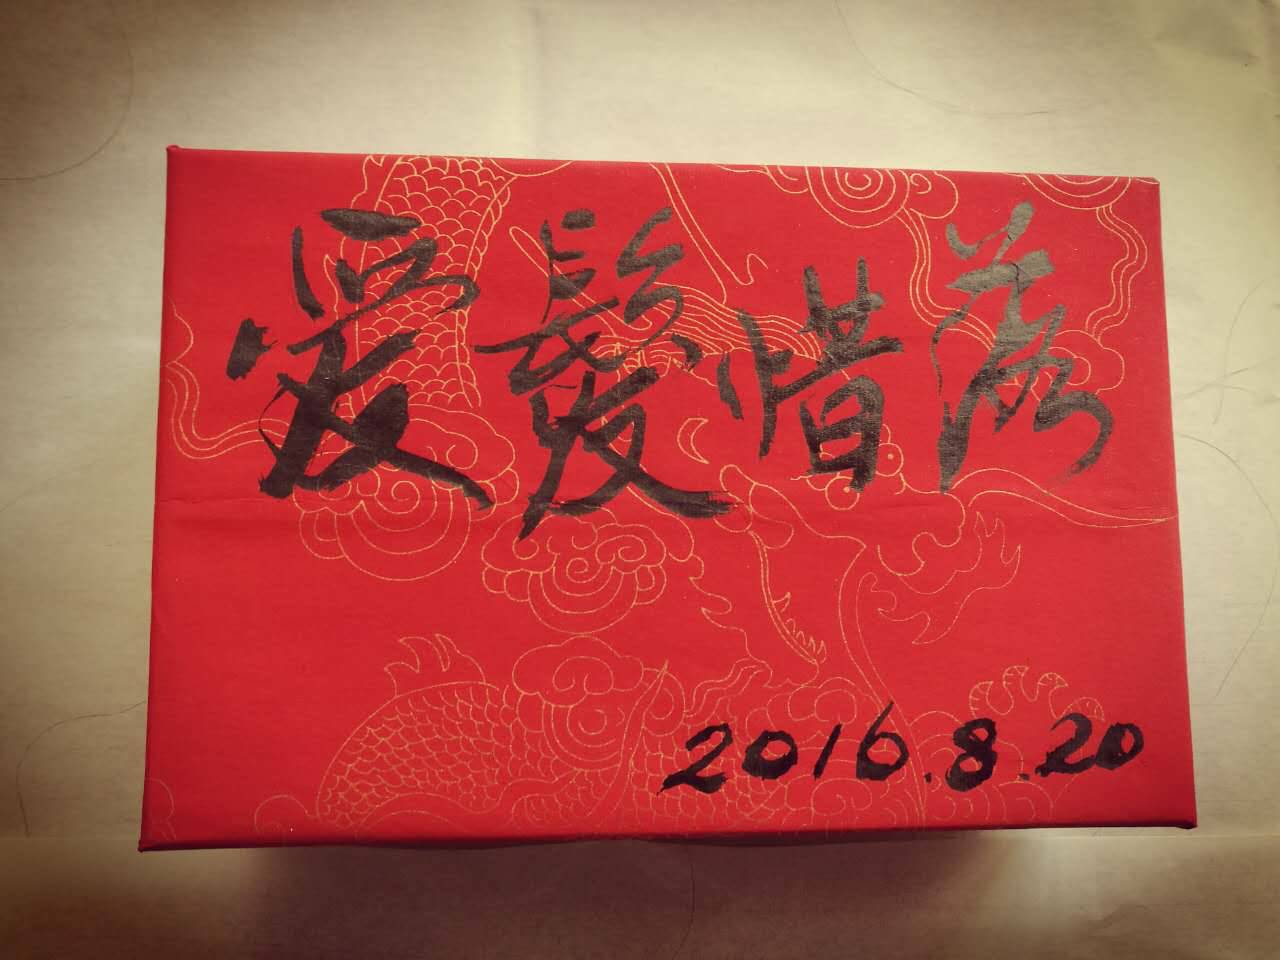 爱髮惜落
2016.8.20